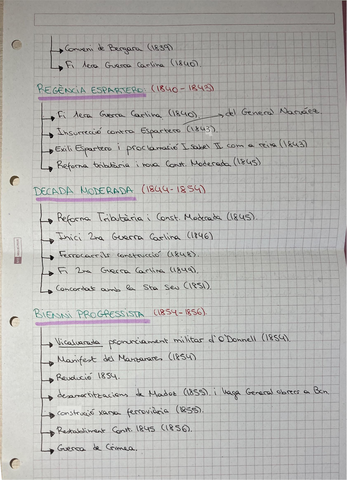 Conveni de Bergara (1839)
Fi 1era Guerra Carlina (1840).
REGÈNCIA ESPARTERO: (1840-1843)
Fi 1era Guerra Carlina (1840)
del General Narváez
Insurrecció contra Espartero (1843)
Exili Espartero i proclamació Isabel II com a reina (1843)
Reforma tributària i nova Const. Moderada (1845)
DÈCADA MODERADA (1844-1854)
Reforma Tributària i Const. Moderada (1845).
Inici 2na Guerra Carlina (1846)
Ferrocarrils construcció (1848).
Fi 2na Guerra Carlina (1849).
Concordat amb la Sta Seu (1851).
BIENNI PROGRESSISTA (1854-1856)
Vicalvarada pronunciament militar d'O'Donnell (1854)
Manifest del Manzanares (1854)
Revolució 1854.
desamortitzacions de Madoz (1855) i Vaga General obrers a Bcn
construcció xarxa ferroviària (1855).
Restabliment Const. 1845 (1856).
Guerra de Crimea.